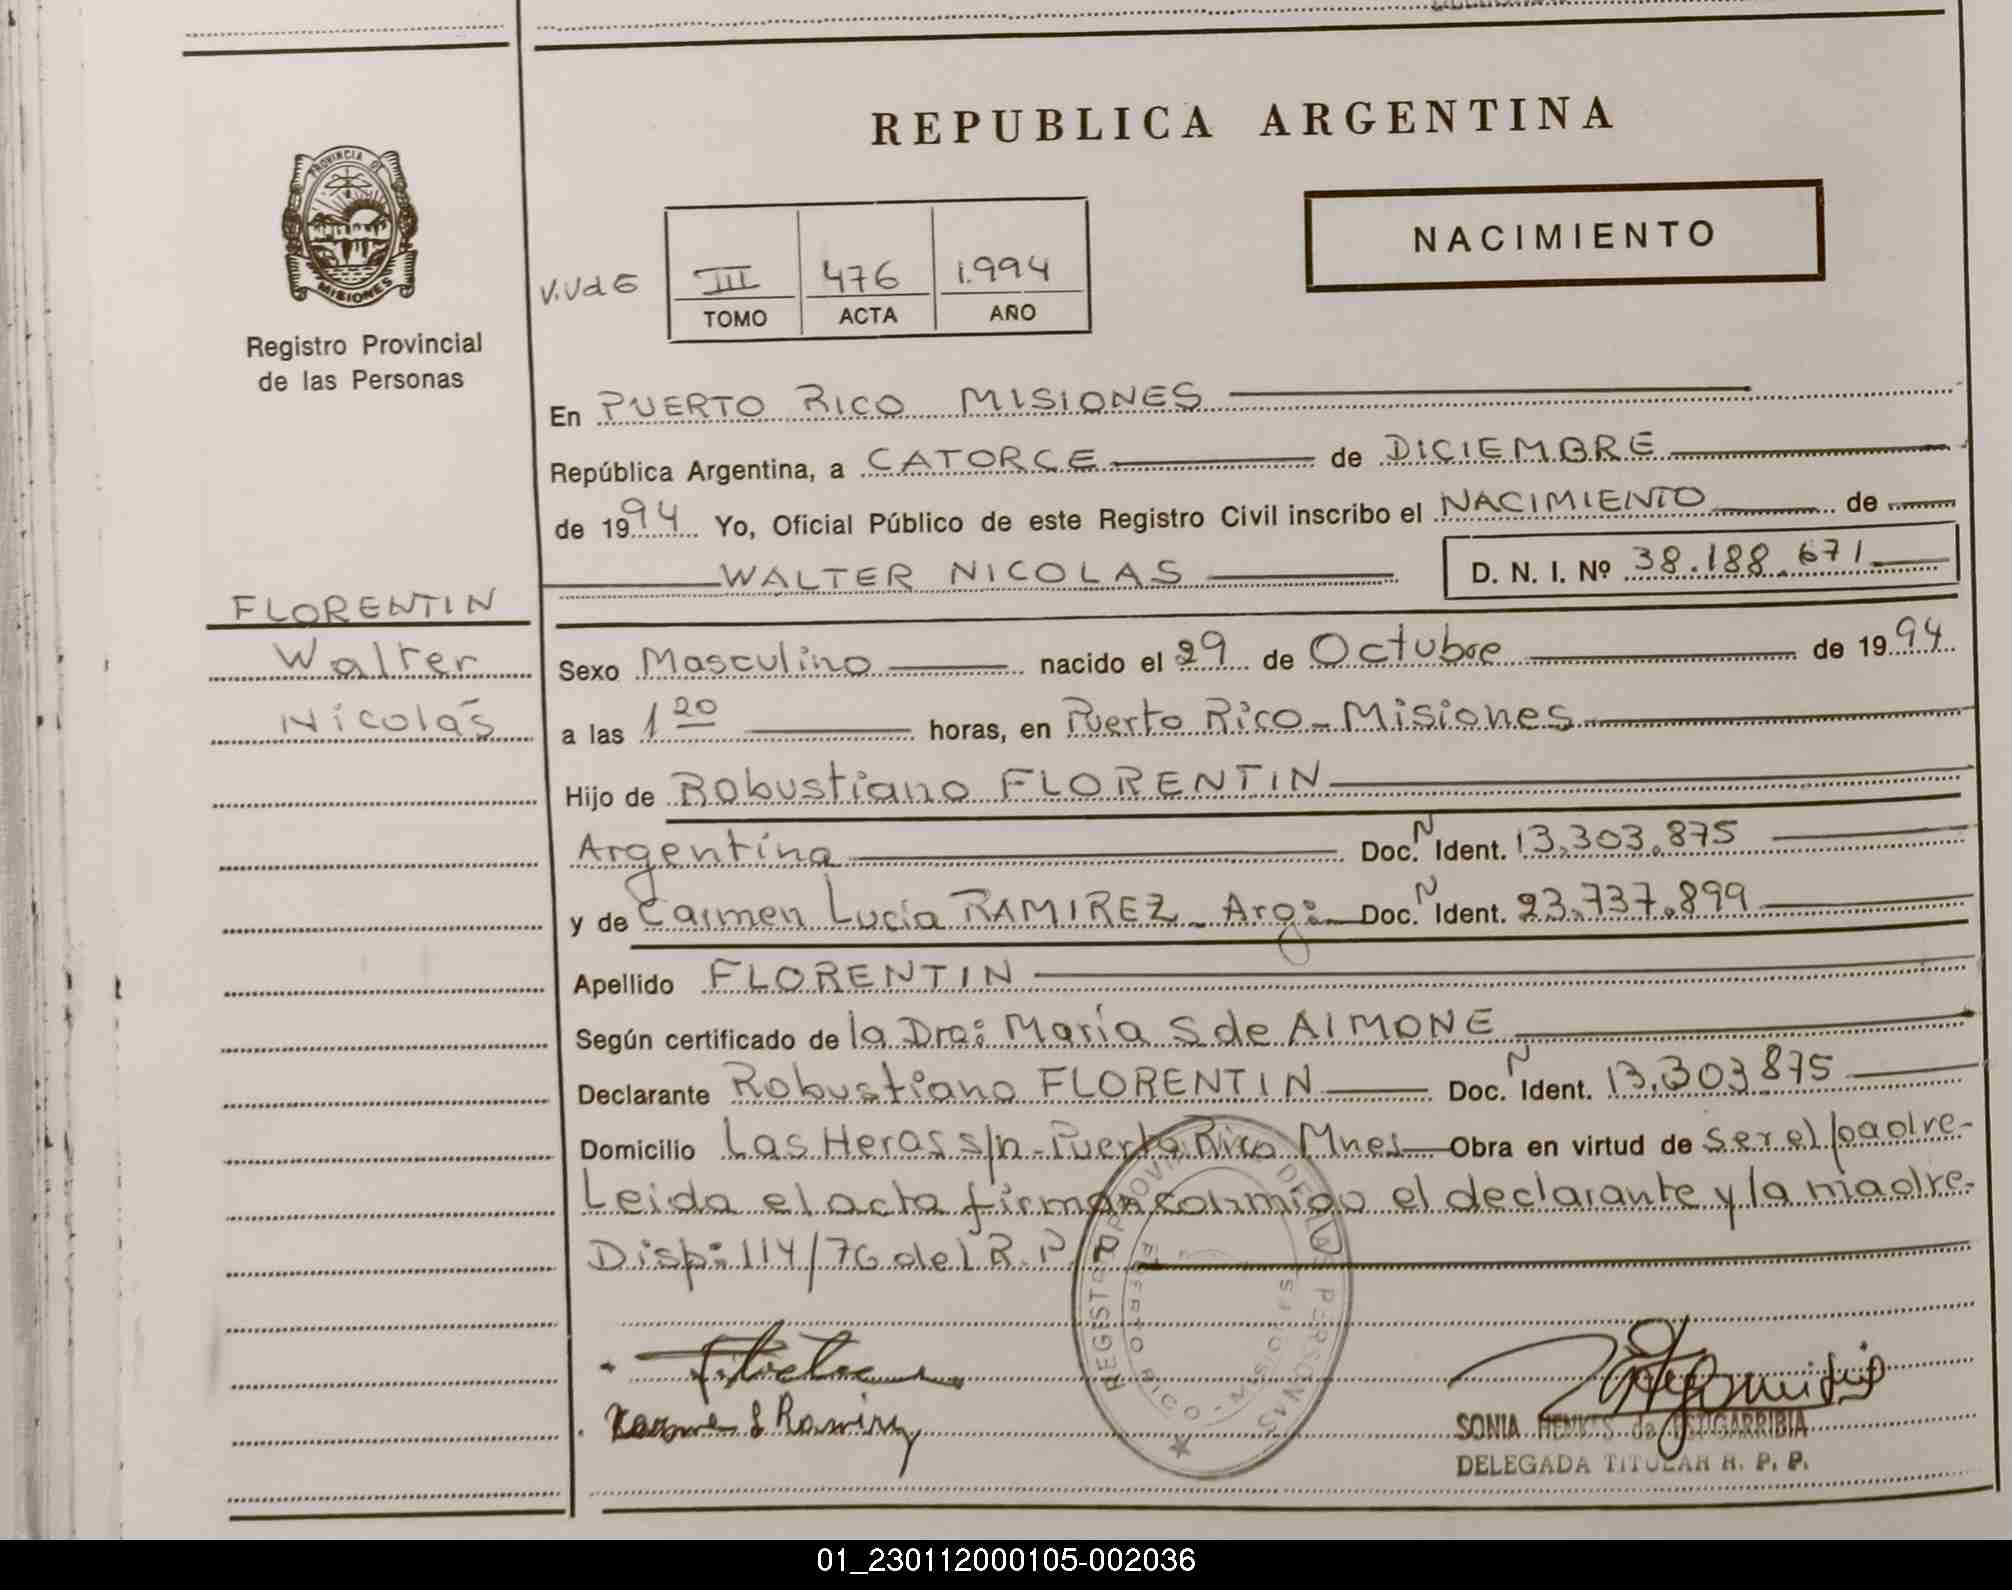 REPUBLICA ARGENTINA
PROVINCIA DE
MISIONES
Registro Provincial
de las Personas
NACIMIENTO
V.Vd6
III 476 1.994
TOMO ACTA AÑO
En PUERTO RICO MISIONES
República Argentina, a CATORCE de DICIEMBRE
de 1994 Yo, Oficial Público de este Registro Civil inscribo el NACIMIENTO de
WALTER NICOLAS D. N. I. Nº 38.188.671
FLORENTIN
Walter
Nicolás
Sexo Masculino nacido el 29 de Octubre de 1994
a las 1 20 horas, en Puerto Rico - Misiones
Hijo de Robustiano FLORENTIN
Argentina Doc. N Ident. 13.303.875
y de Carmen Lucía RAMIREZ - Arg: Doc. N Ident. 23.737.899
Apellido FLORENTIN
Según certificado de la Dra: María S de AIMONE
Declarante Robustiano FLORENTIN Doc. N Ident. 13.303875
Domicilio Las Heras s/n - Puerto Rico Mnes Obra en virtud de ser el padre-
Leida el acta firman conmigo el declarante y la madre-
Disp: 114/76 del R.P.P
REGISTRO PROVINCIAL DE LAS PERSONAS
PUERTO RICO - MISIONES
SONIA HENKES de ESTIGARRIBIA
DELEGADA TITULAR R. P. P.
01_230112000105-002036